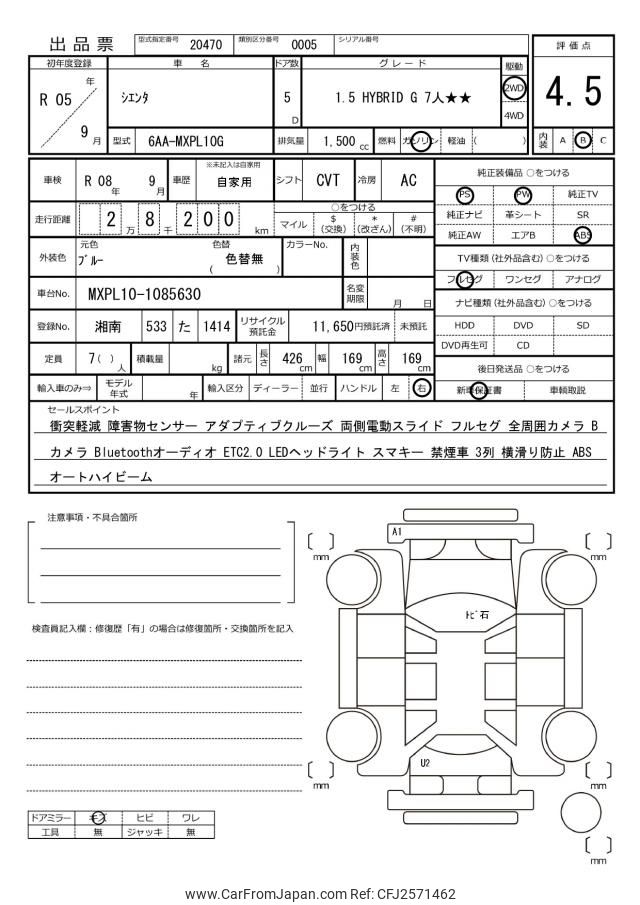 出品票 型式指定番号 20470 類別区分番号 0005 シリアル番号
評価点
4.5
内装 A B C
初年度登録 車名 ドア数 グレード 駆動
R 05 年 9 月 シエンタ 5 D 1.5 HYBRID G 7人★★ 2WD
4WD
型式 6AA-MXPL10G 排気量 1,500 cc 燃料 ガソリン 軽油 ( )
車検 R 08 年 9 月 車歴 ※未記入は自家用 自家用 シフト CVT 冷房 AC
走行距離 2 万 8 千 2 0 0 km
○をつける
マイル $ (交換) * (改ざん) # (不明)
外装色 元色 ブルー 色替 ( 色替無 ) カラーNo. 内装色
車台No. MXPL10-1085630 名変期限 月 日
登録No. 湘南 533 た 1414 リサイクル預託金 11,650円預託済 未預託
定員 7( ) 人 積載量 kg 諸元 長さ 426 cm 幅 169 cm 高さ 169 cm
輸入車のみ⇒ モデル年式 年 輸入区分 ディーラー 並行 ハンドル 左 右
純正装備品 ○をつける
PS PW 純正TV
純正ナビ 革シート SR
純正AW エアB ABS
TV種類 (社外品含む) ○をつける
フルセグ ワンセグ アナログ
ナビ種類 (社外品含む) ○をつける
HDD DVD SD
DVD再生可 CD
後日発送品 ○をつける
新車保証書 車輌取説
セールスポイント
衝突軽減 障害物センサー アダプティブクルーズ 両側電動スライド フルセグ 全周囲カメラ B
カメラ Bluetoothオーディオ ETC2.0 LEDヘッドライト スマキー 禁煙車 3列 横滑り防止 ABS
オートハイビーム
注意事項・不具合箇所
検査員記入欄：修復歴「有」の場合は修復箇所・交換箇所を記入
A1
[ ] mm
[ ] mm
トビ石
U2
[ ] mm
[ ] mm
[ ] mm
ドアミラー キズ ヒビ ワレ
工具 無 ジャッキ 無
www.CarFromJapan.com Ref: CFJ2571462